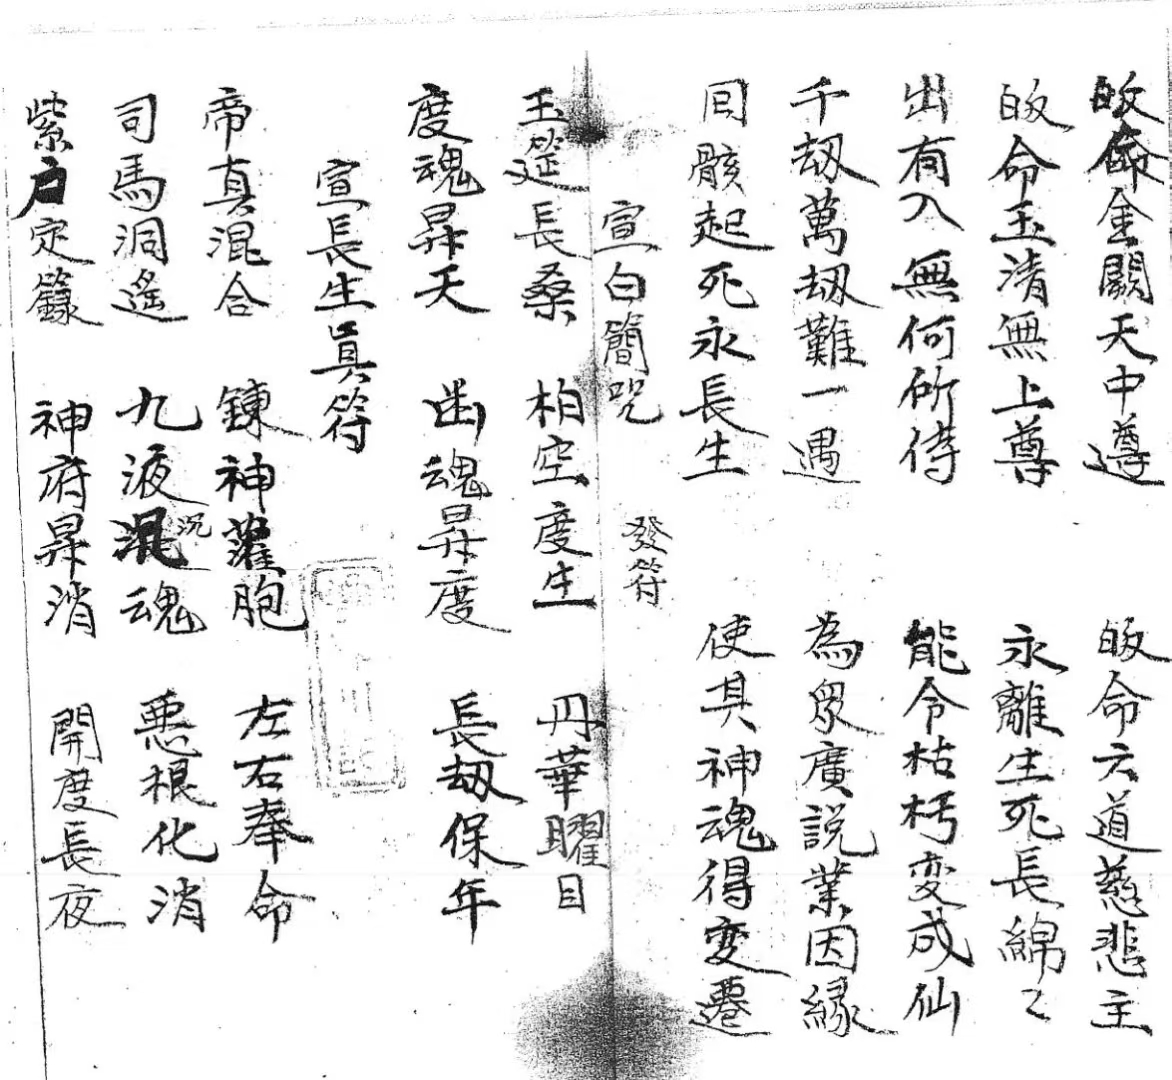 皈命金闕天中尊 皈命六道慈悲主
皈命玉清無上尊 永離生死長綿々
出有入無何所待 能令枯朽変成仙
千刼萬刼難一遇 為衆廣說業因緣
囘骸起死永長生 使其神魂得变遷
宣白簡咒 發符
玉筵長桑 柏空度生 丹華曜目
度魂昇天 幽魂昇度 長刼保年
宣長生眞符
帝真混合 鍊神灌胞 左右奉命
司馬洞遙 九液混沉魂 悪根化消
紫户定籙 神府昇消 開度長夜